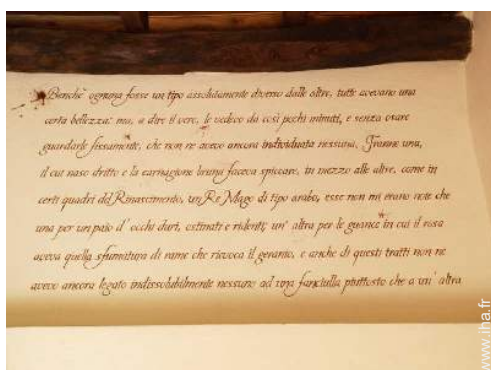 Benchè ognuna fosse un tipo assolutamente diverso dalle altre, tutte avevano una
certa bellezza: ma, a dire il vero, le vedevo da così pochi minuti, e senza osare
guardarle fissamente, che non ne avevo ancora individuata nessuna. Tranne una,
il cui naso dritto e la carnagione bruna faceva spiccare, in mezzo alle altre, come in
certi quadri del Rinascimento, un Re Mago di tipo arabo, esse non mi erano note che
una per un paio d' occhi duri, ostinati e ridenti; un' altra per le guance in cui il rosa
aveva quella sfumatura di rame che rievoca il geranio, e anche di questi tratti non ne
avevo ancora legato indissolubilmente nessuno ad una fanciulla piuttosto che a un' altra
www.iha.fr